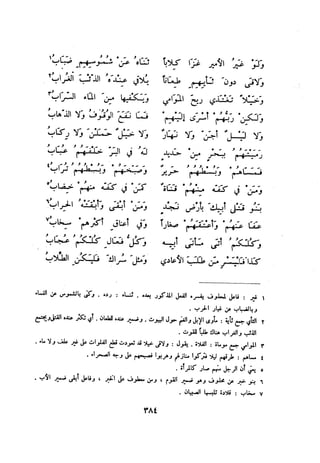 وَلَوْ غَيرُ الأميرِ غَزَا كِلاباً ثَنَاهُ عَنْ شُمُوسِهِمِ ضَبَابُ١
وَلاقَى دونَ ثَأيِهِمِ طِعَاناً يُلاقي عِنْدَهُ الذّئْبَ الغُرَابُ٢
وَخَيْلاً تَغْتَذي رِيحَ المَوَامي وَيَكْفيها مِنَ المَاءِ السّرَابُ٣
وَلَكِنْ رَبُّهُمْ أسْرَى إلَيْهِمْ فَمَا نَفَعَ الوُقُوفُ وَلا الذّهابُ
وَلا لَيْلٌ أجَنّ وَلا نَهَارٌ وَلا خَيْلٌ حَمَلْنَ وَلا رِكَابُ
رَمَيْتَهُمُ بِبَحْرٍ مِنْ حَديدٍ لَهُ في البَرّ خَلْفَهُمُ عُبَابُ
فَمَسّاهُمْ وَبُسْطُهُمُ حَريرٌ وَصَبّحَهُمْ وَبُسْطُهُمُ تُرَابُ٤
وَمَنْ في كَفّهِ مِنْهُمْ قَنَاةٌ كَمَنْ في كَفّهِ مِنْهُمْ خِضابُ٥
بَنُو قَتْلى أبِيكَ بأرْضِ نَجْدٍ وَمَنْ أبْقَى وَأبْقَتْهُ الحِرابُ٦
عَفَا عَنْهُمْ وَأعْتَقَهُمْ صِغاراً وَفي أعناقِ أكثرِهمْ سِخابُ٧
وَكُلّكُمُ أتَى مَأتَى أبِيهِ وَكُلُّ فَعَالِ كُلّكُمُ عُجَابُ
كَذا فَلْيَسْرِ مَن طَلَبَ الأعادي وَمثلَ سُراكَ فَليَكُنِ الطِّلابُ
١ غير : فاعل لمحذوف يفسره الفعل المذكور بعده . ثناه : رده . وكنى بالشموس عن النساء
وبالضباب عن غبار الحرب .
٢ الثأي جمع ثأية : مأوى الإبل والغنم حول البيوت . وضمير عنده للطعان . أي تكثر عنده القتلى ويجتمع
الذئب والغراب هناك طلباً للقوت .
٣ الموامي جمع موماة : الفلاة . يقول : ولاقى خيلا قد تعودت قطع الفلوات على غير علف ولا ماء .
٤ مساهم : طرقهم ليلا فتركوا منازلهم وهربوا فصبحهم على وجه الصحراء .
٥ يعني أن الرجل منهم صار كالمرأة .
٦ بنو خبر عن محذوف وهو ضمير القوم ، ومن معطوف على الخبر ، وفاعل أبقى ضمير الأب .
٧ سخاب : قلادة تلبسها الصبيان .
٣٨٤